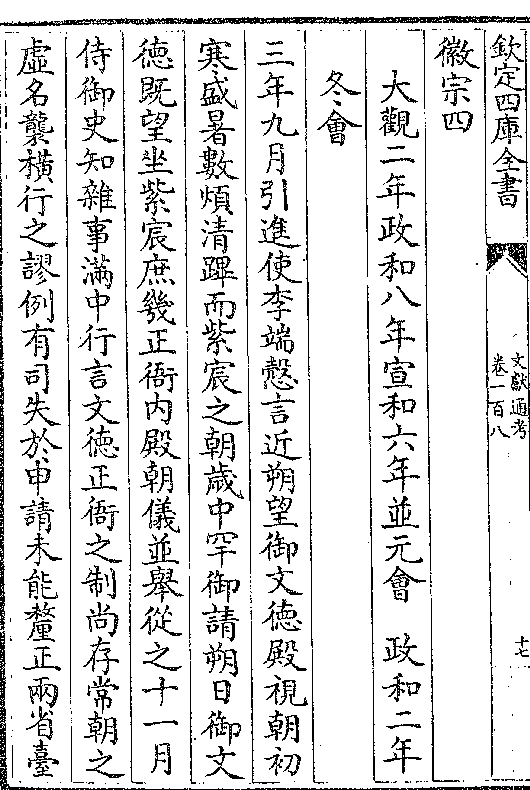 欽定四庫全書
文獻通考
卷一百八
十七
徽宗四
大觀二年政和八年宣和六年並元會　政和二年
冬會
三年九月引進使李端慤言近朔望御文徳殿視朝初
寒盛暑數煩清蹕而紫宸之朝歲中罕御請朔日御文
徳既望坐紫宸庶幾正衙内殿朝儀並舉從之十一月
侍御史知雜事滿中行言文徳正衙之制尚存常朝之
虛名襲橫行之謬例有司失於申請未能釐正兩省臺